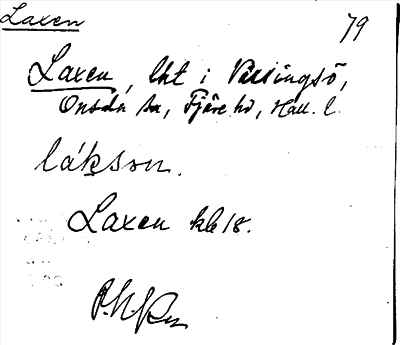 Laxen
79
Laxen, lht i Vallingsö,
Onsala sn, Fjäre hd, Hall. l.
lákson.
Laxen kb 18.